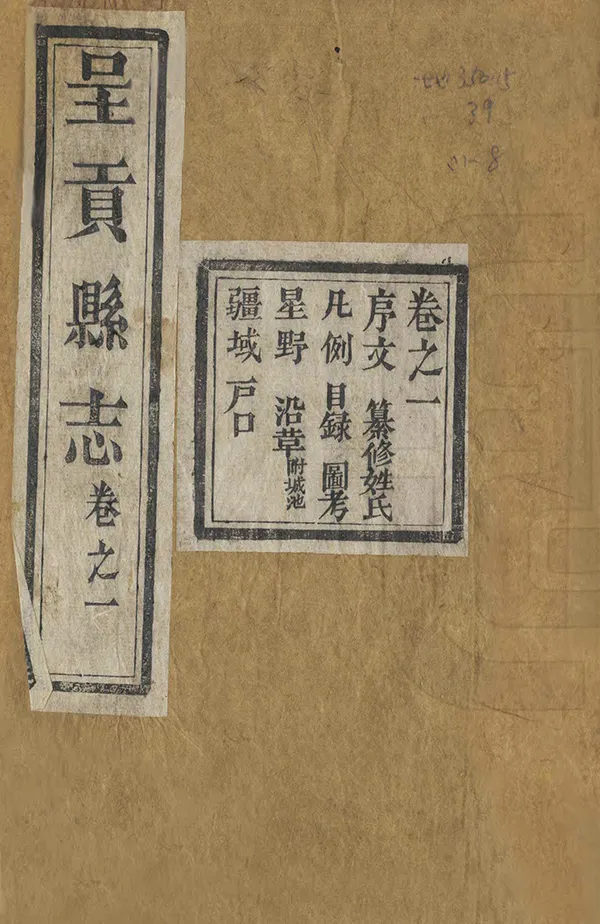 呈貢縣志卷之一
卷之一
序文 纂修姓氏
凡例 目録 圖考
星野 沿革附城池
疆域 戶口
39